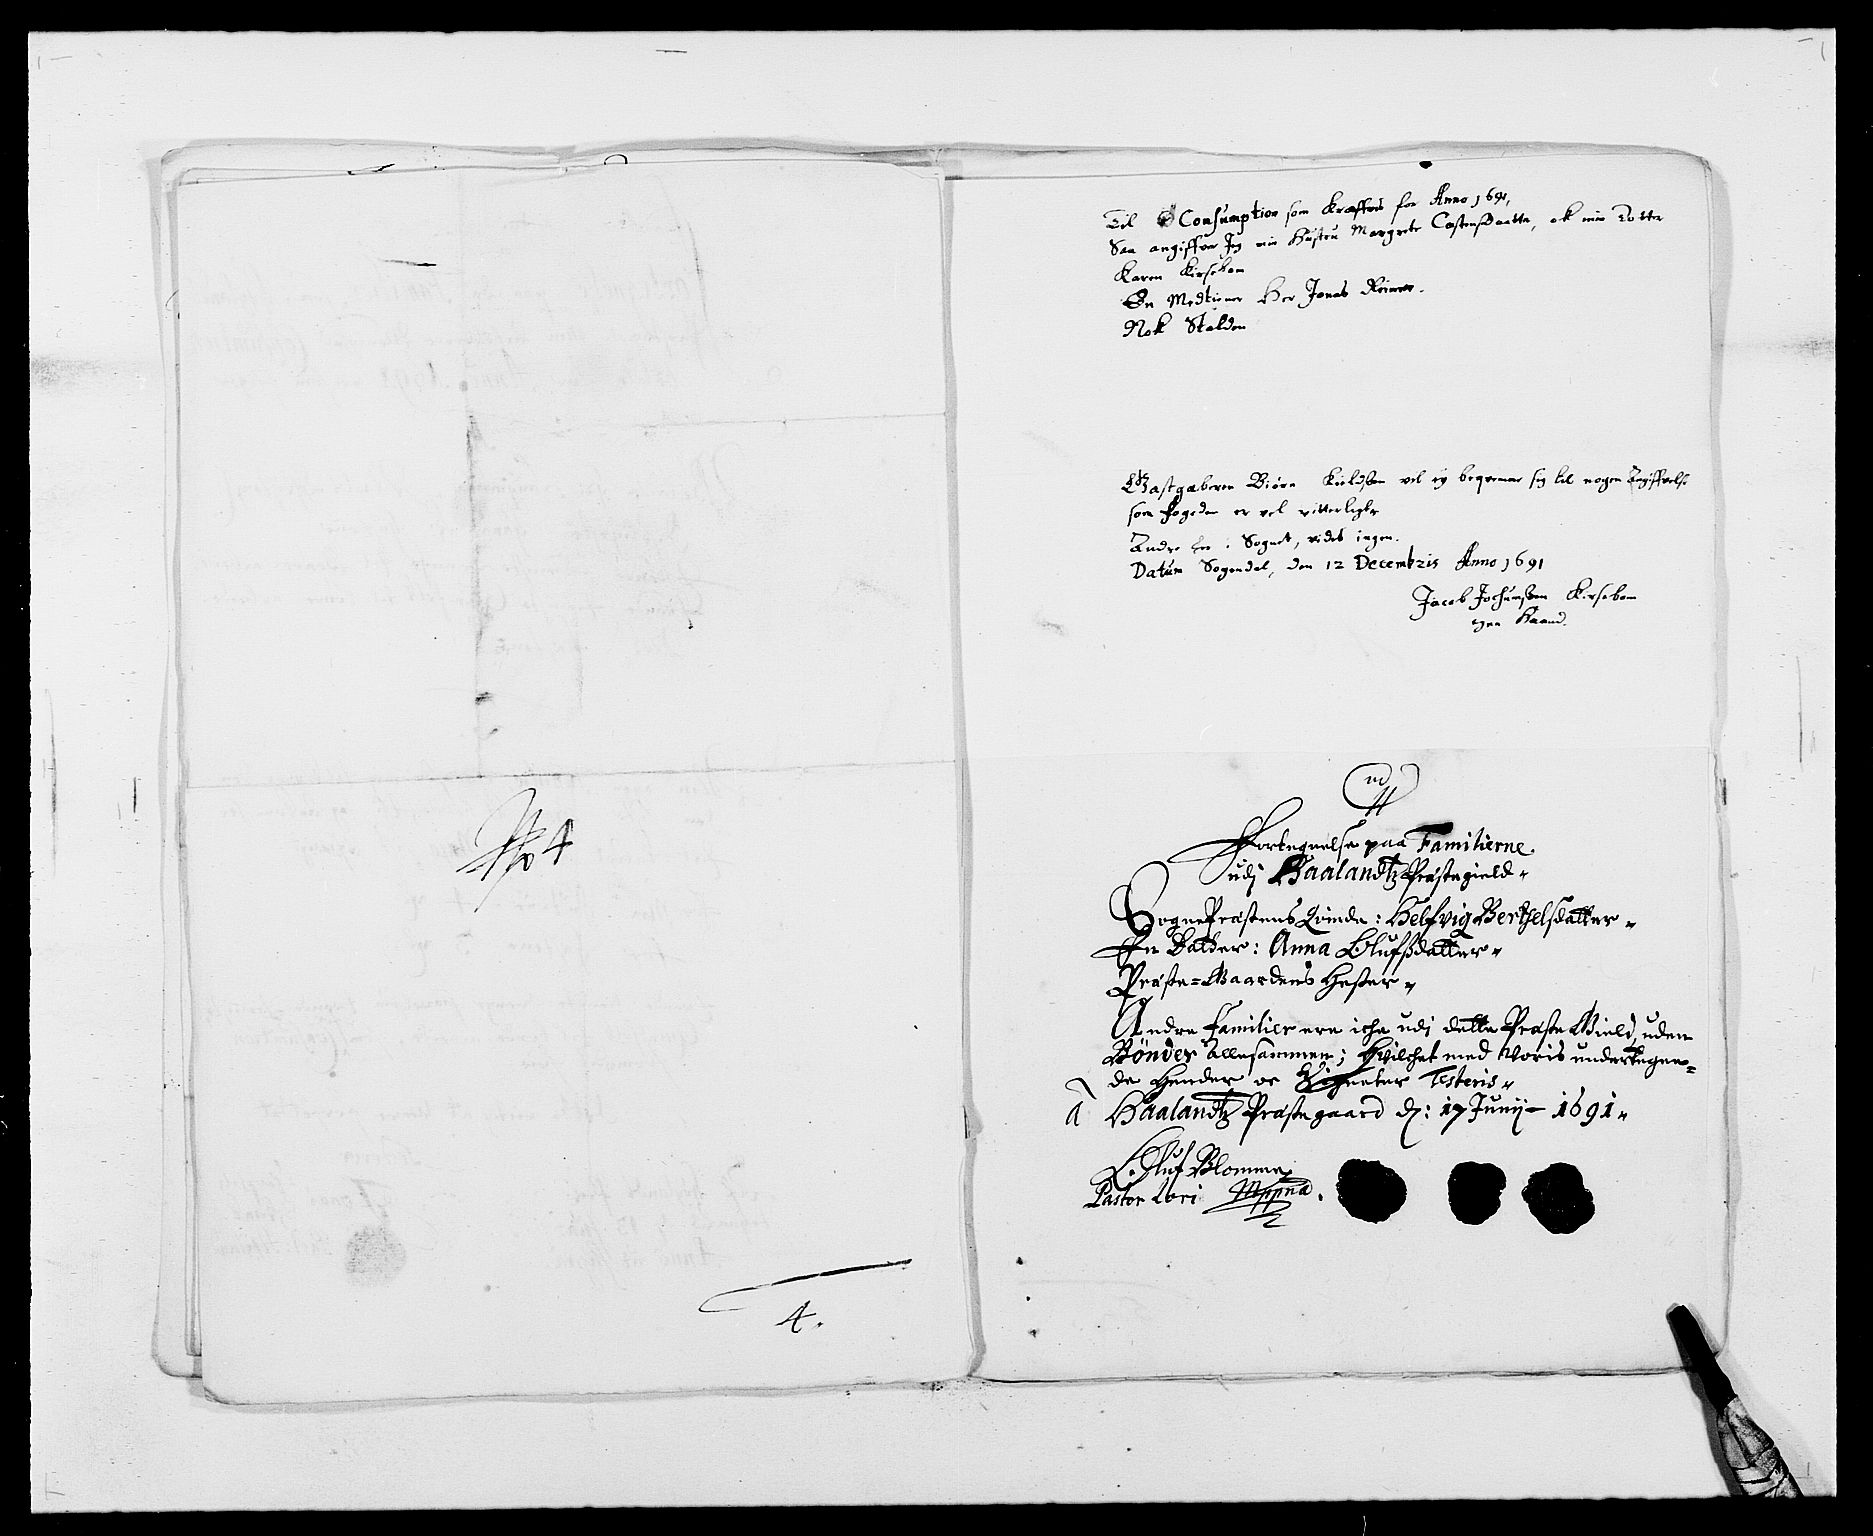 No 4
4.
Til Consumption som Kræffvis for Anno 1691,
Saa angiffver Jeg min Hustru Margrete CastensDaatter, ok min Dotter
Karen Kirsebom
En Medtiener Her Jonas Reimer.
Nok Stalden
Gastgæberen Biørn Kieldsen vel ey beqvemer sig til nogen Angiffvelse
som fogeden er vel vitterligt
Andre her i Sognet, vides ingen.
Datum Sogendal, den 12 Decembris Anno 1691
Jacob Jochumsen Kirsebom
egen Haand.
Fortegnelse paa Familierne
udj Haalandtz Præstegield
SognePræstens Qvinde: Helfvig Berthelsdatter
En Datter: Anna Olufsdatter
Præste=Gaardens Hester
Andre Familier ere iche udj dette Præste Gield, uden
Bønder allesammen; Hvilchet med Voris undertegne=
de Hender oc Signeter Testeris
â Haalandtz Præstegaard d: 17 Junij 1691
Oluf Blomme
Pastor Loci Mppria.